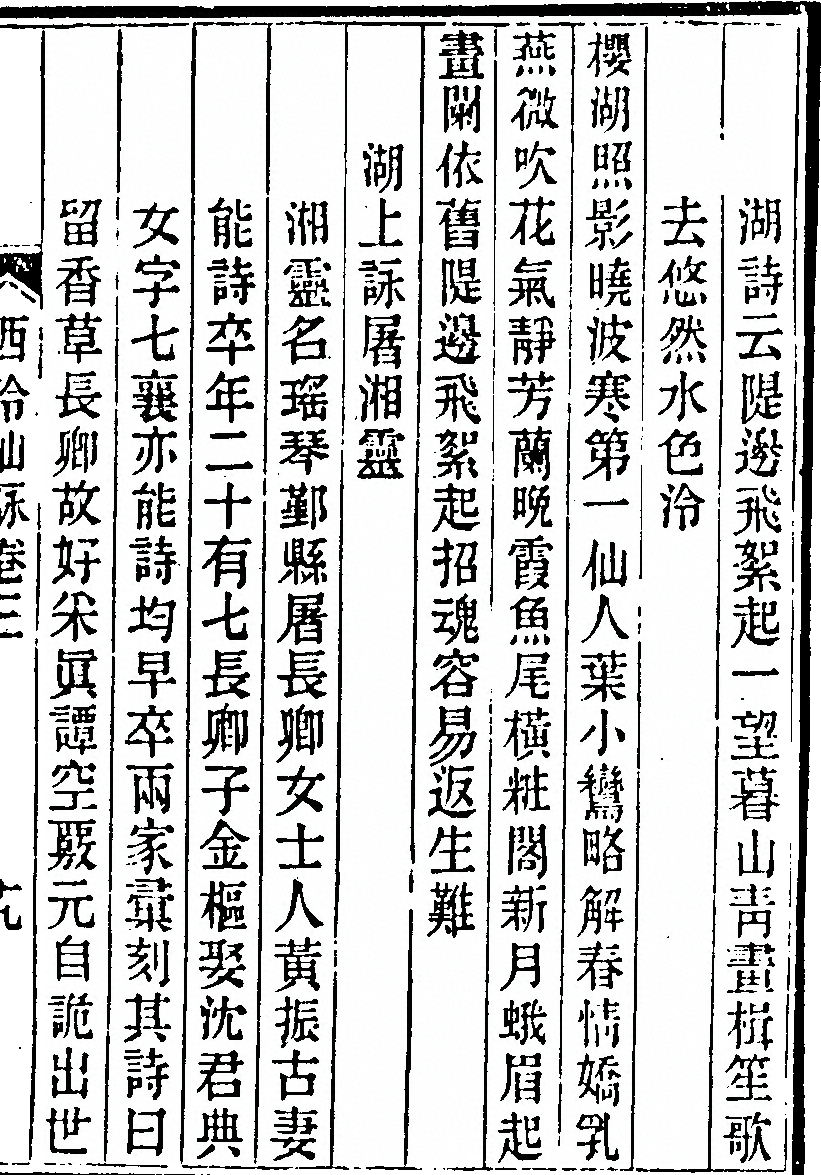 湖詩云隄邊飛絮起一望暮山靑畫楫笙歌
去悠然水色泠
櫻湖照影曉波寒第一仙人葉小鸞略解春情嬌乳
燕微吹花氣靜芳蘭晩霞魚尾橫粧閣新月蛾眉起
畫闌依舊隄邊飛絮起招魂容易返生難
湖上詠屠湘靈
湘靈名瑤琴鄞縣屠長卿女士人黃振古妻
能詩卒年二十有七長卿子金樞娶沈君典
女字七襄亦能詩均早卒兩家彙刻其詩曰
留香草長卿故好米眞譚空覈元自詭出世
西泠仙詠卷三